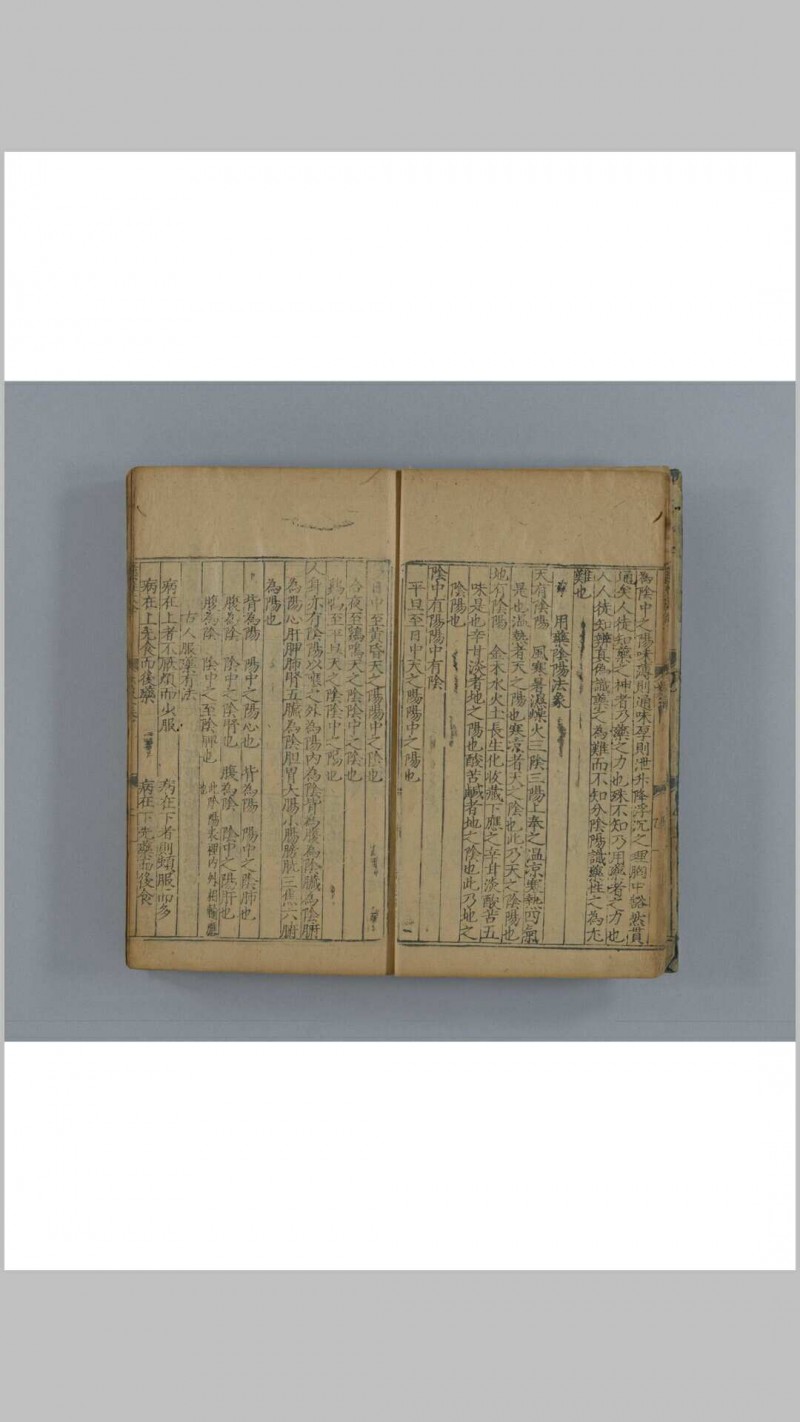 為陰中之陽味薄則通味厚則泄升降浮沉之理胸中豁然貫
通矣人徒知藥之神者乃藥之力也殊不知乃用藥者之力也
人人徒知辨真偽識藥之為難而不知分陰陽識藥性之為尤
難也
用藥陰陽法象
天有陰陽 風寒暑濕燥火三陰三陽上奉之温凉寒熱四氣
是也温熱者天之陽也寒凉者天之陰也此乃天之陰陽也
地有陰陽 金木水火土長生化收藏下應之辛甘淡酸苦五
味是也辛甘淡者地之陽也酸苦鹹者地之陰也此乃地之
陰陽也
陰中有陽陽中有陰
平旦至日中天之陽陽中之陽也
日中至黄昏天之陽陽中之陰也
合夜至鷄鳴天之陰陰中之陰也
鷄鳴至平旦天之陰陰中之陽也
人身亦有陰陽以裏之外為陽内為陰背為腹為陰臟為陰腑
為陽心肝脾肺腎五臟為陰胆胃大腸小腸膀胱三焦六腑
為陽也
背為陽 陽中之陽心也 背為陽 陽中之陰肺也
腹為陰 陰中之陰腎也 腹為陰 陰中之陽肝也
腹為陰 陰中之至陰脾也 此陰陽表裡内外相輸應
也
古人服藥有法
病在上者不厭頻而少服 病在下者則頻服而多
病在上先食而後藥 病在下先藥而後食